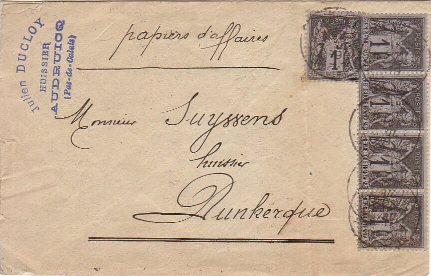 Julien DUCLOY
HUISSIER
AUDRUICQ
(Pas-de-Calais)
papiers d'affaires
Monsieur Suyssens
huissier
Dunkerque
1
1
1
1
1